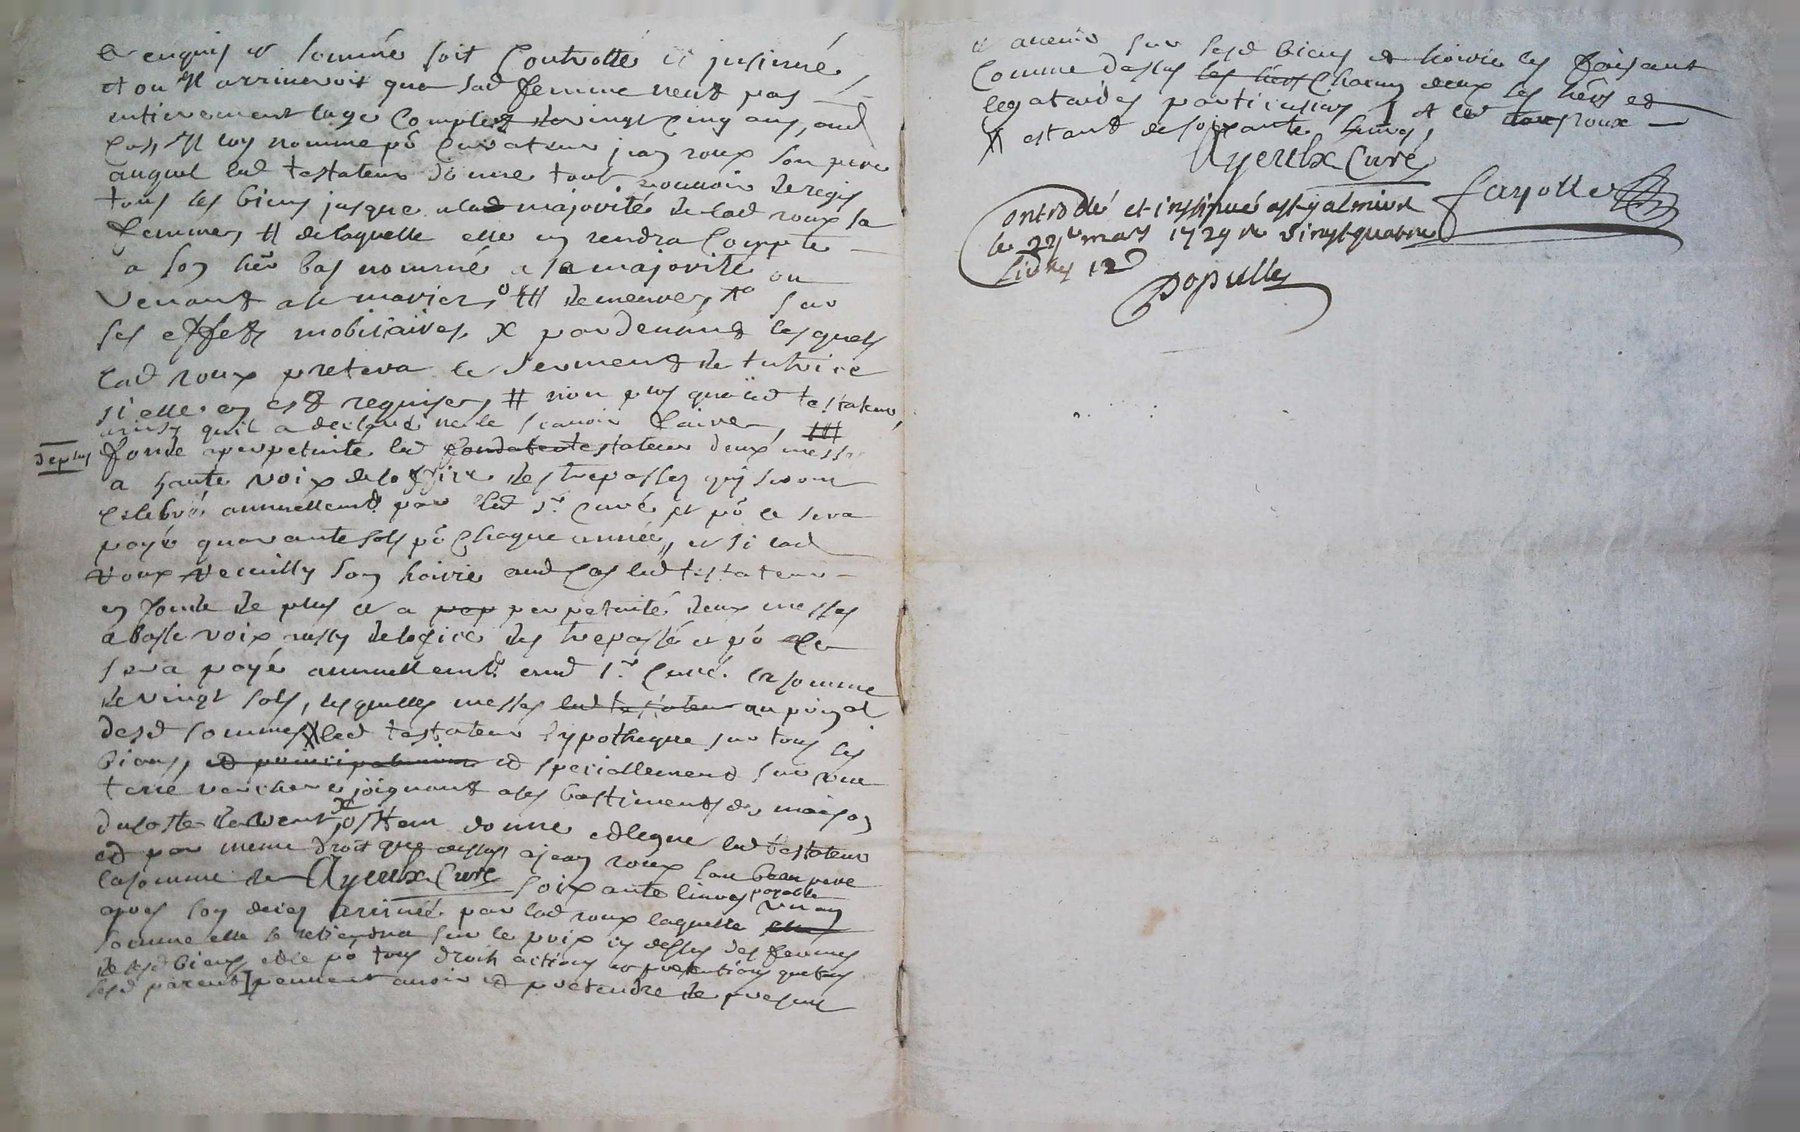 de enquis et sommé soit Controllé et insinué
et ou Il arriveroit que lad femme neut pas
entierement lage Complet de vingt cinq ans, aud
cas, Il luy nomme pr Curateur jean roux son pere
auquel led testateur donne tout pouvoir de regir
tous ses biens jusque a lad majorité de lad roux sa
femme, # de laquelle elle en rendra Compte
a son hér bas nommé a sa majorité ou
Venant a se marier, # demeure, sur
ses effets mobiliaires, X pardevant lesquels
lad roux pretera le serment de tutrice
si elle en est requise, # non plus que led testateur,
ainsy quil a declaré ne le scavoir faire, #
de plus fonde a perpetuité led fondateur testateur deux messes
a haute voix de loffice des trepasses quy seront
celebré annuellemt par led sr curé et pr ce sera
payé quarante sols pr Chaque année, et si lad
roux recuilly son hoirie aud cas led testateur
en fonde de plus et a pep perpetuité deux messes
a basse voix aussy de lofice des trepassé et pr ce
sera payé annuellemt aud sr Curé la somme
de vingt sols, lesquelles messes led testateur au
desd sommes X led testateur hypotheque sur tous ses
biens, et principalement et speciallement sur une
terre verchere joignant a ses bastiments de maison
du costé de vent, X Item donne et legue led testateur
et par meme droit que dessus a jean roux son beau pere
la somme de Ayeulx Curé soixante livres payable
apres son deces arrivé par lad roux laquelle un an
somme elle se retiendra sur le prix cy dessus des
de sesd biens et le pr tous droits actions et pretentions que
lesd parents I peuvent avoir et pretendre de present
et avenir sur sesd biens et hoirie les faisant
Comme dessus les hers Chacun deux ses hérs et
legataires particuliers I et led roux
X estant de soixante livres,
Ayeulx Curé
Fayolle
Controllé et insinué a st galmier
le 22e mars 1729 R vingt quatre
livres 12 s
Populle